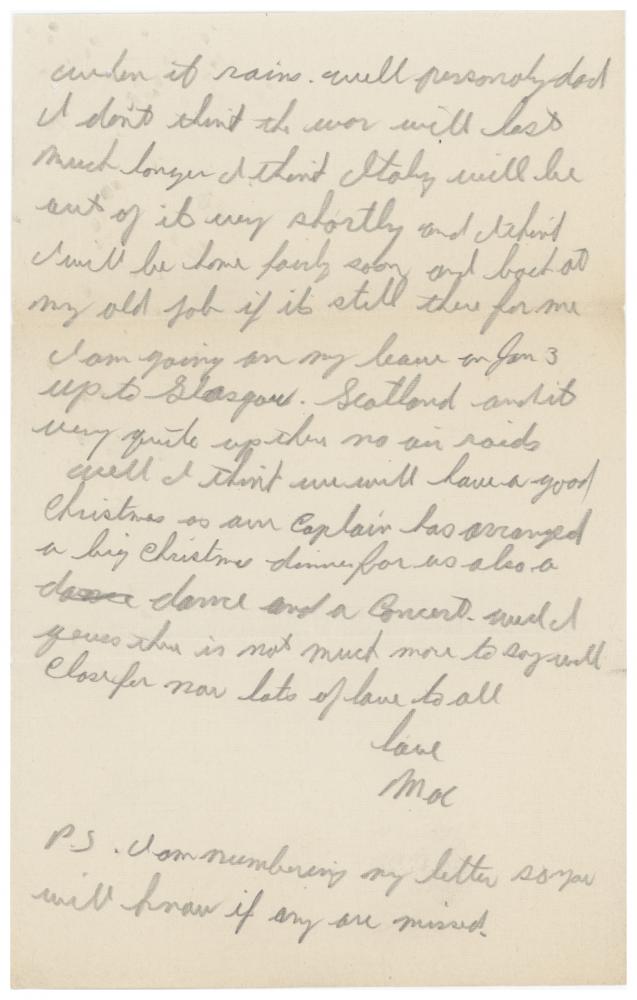 when it rains. well personaly dad
I don't think the war will last
much longer I think Italy will be
out of it very shortly and I think
I will be home fairly soon and back at
my old job if it still there for me
I am going on my leave on Jan 3
up to Glasgow. Scotland and it
very quite up there no air raids
well I think we will have a good
Christmas as our Captain has arranged
a big Christmas dinner for us also a
dance dance and a Concert. well I
guess there is not much more to say will
close for now lots of love to all
love
Mac
P.S. I am numbering my letter so you
will know if any are missed.